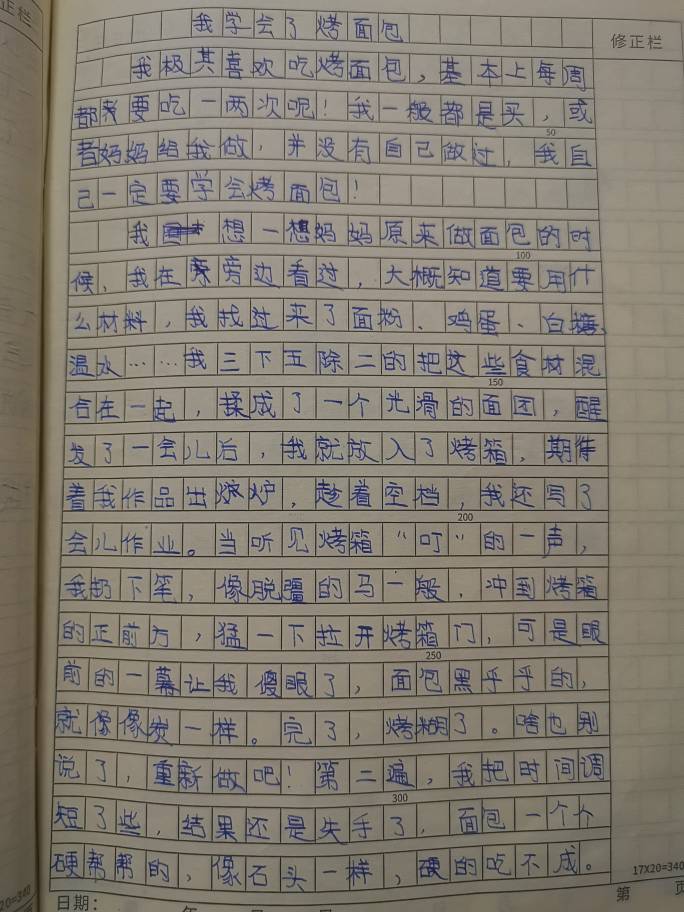 正栏
我学会了烤面包
修正栏
我极其喜欢吃烤面包，基本上每周
都要吃一两次呢！我一般都是买，或
50
者妈妈给我做，并没有自己做过，我自
己一定要学会烤面包！
我想一想妈妈原来做面包的时
100
候，我在旁边看过，大概知道要用什
么材料，我找过来了面粉、鸡蛋、白糖、
温水……我三下五除二的把这些食材混
150
合在一起，揉成了一个光滑的面团，醒
发了一会儿后，我就放入了烤箱，期待
着我作品出炉，趁着空档，我还写了
200
会儿作业。当听见烤箱“叮”的一声，
我扔下笔，像脱疆的马一般，冲到烤箱
的正前方，猛一下拉开烤箱门，可是眼
250
前的一幕让我傻眼了，面包黑乎乎的，
就像像炭一样。完了，烤糊了。啥也别
说了，重新做吧！第二遍，我把时间调
300
短了些，结果还是失手了，面包一个个
硬帮帮的，像石头一样，硬的吃不成。
17X20=340
20=340
日期：
年
第
页